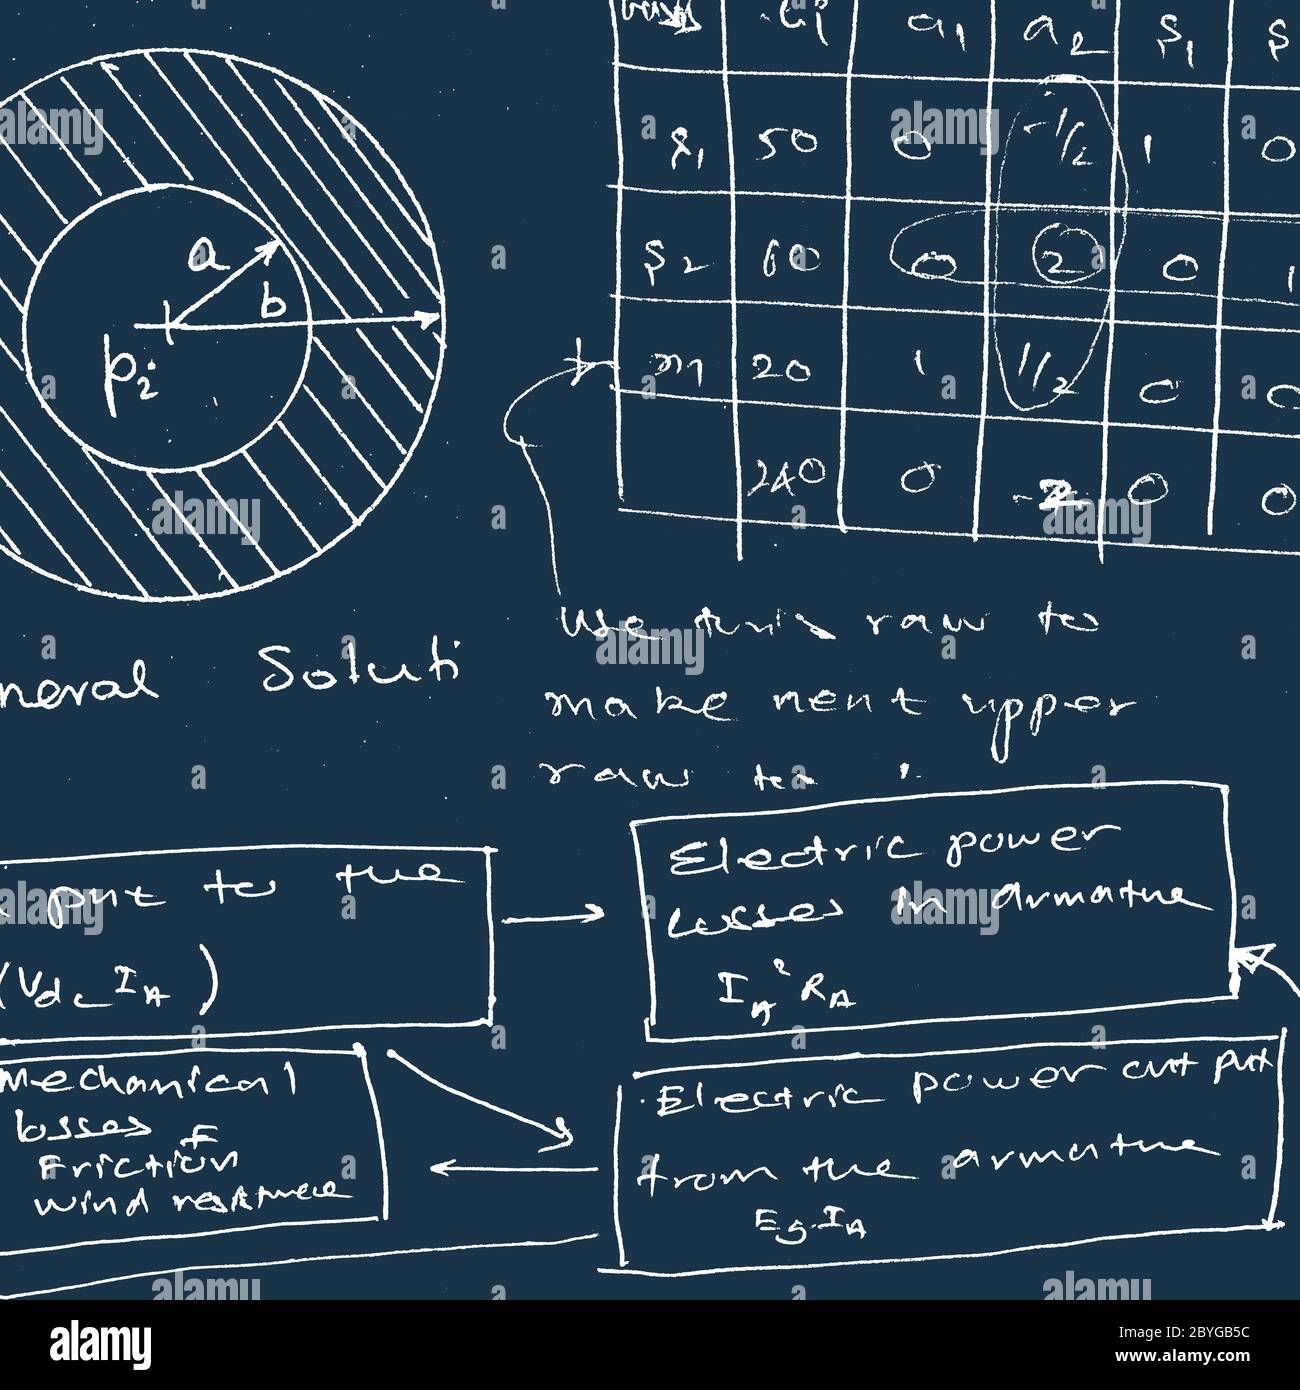 a
b
p2
neral Soluti
a1 a2 S1 S
S1 50 0 -1/2 1 0
S2 60 0 2 0 1
m 20 1 1/2 0 0
240 0 -2 0 0
use this raw to
make nent upper
raw to
put to the
(Vdc IA)
Electric power
losses in armature
IA² RA
Mechanical
losses
Friction
wind resistance
Electric power out put
from the armature
Eg.IA
alamy
Image ID: 2BYGB5C
www.alamy.com